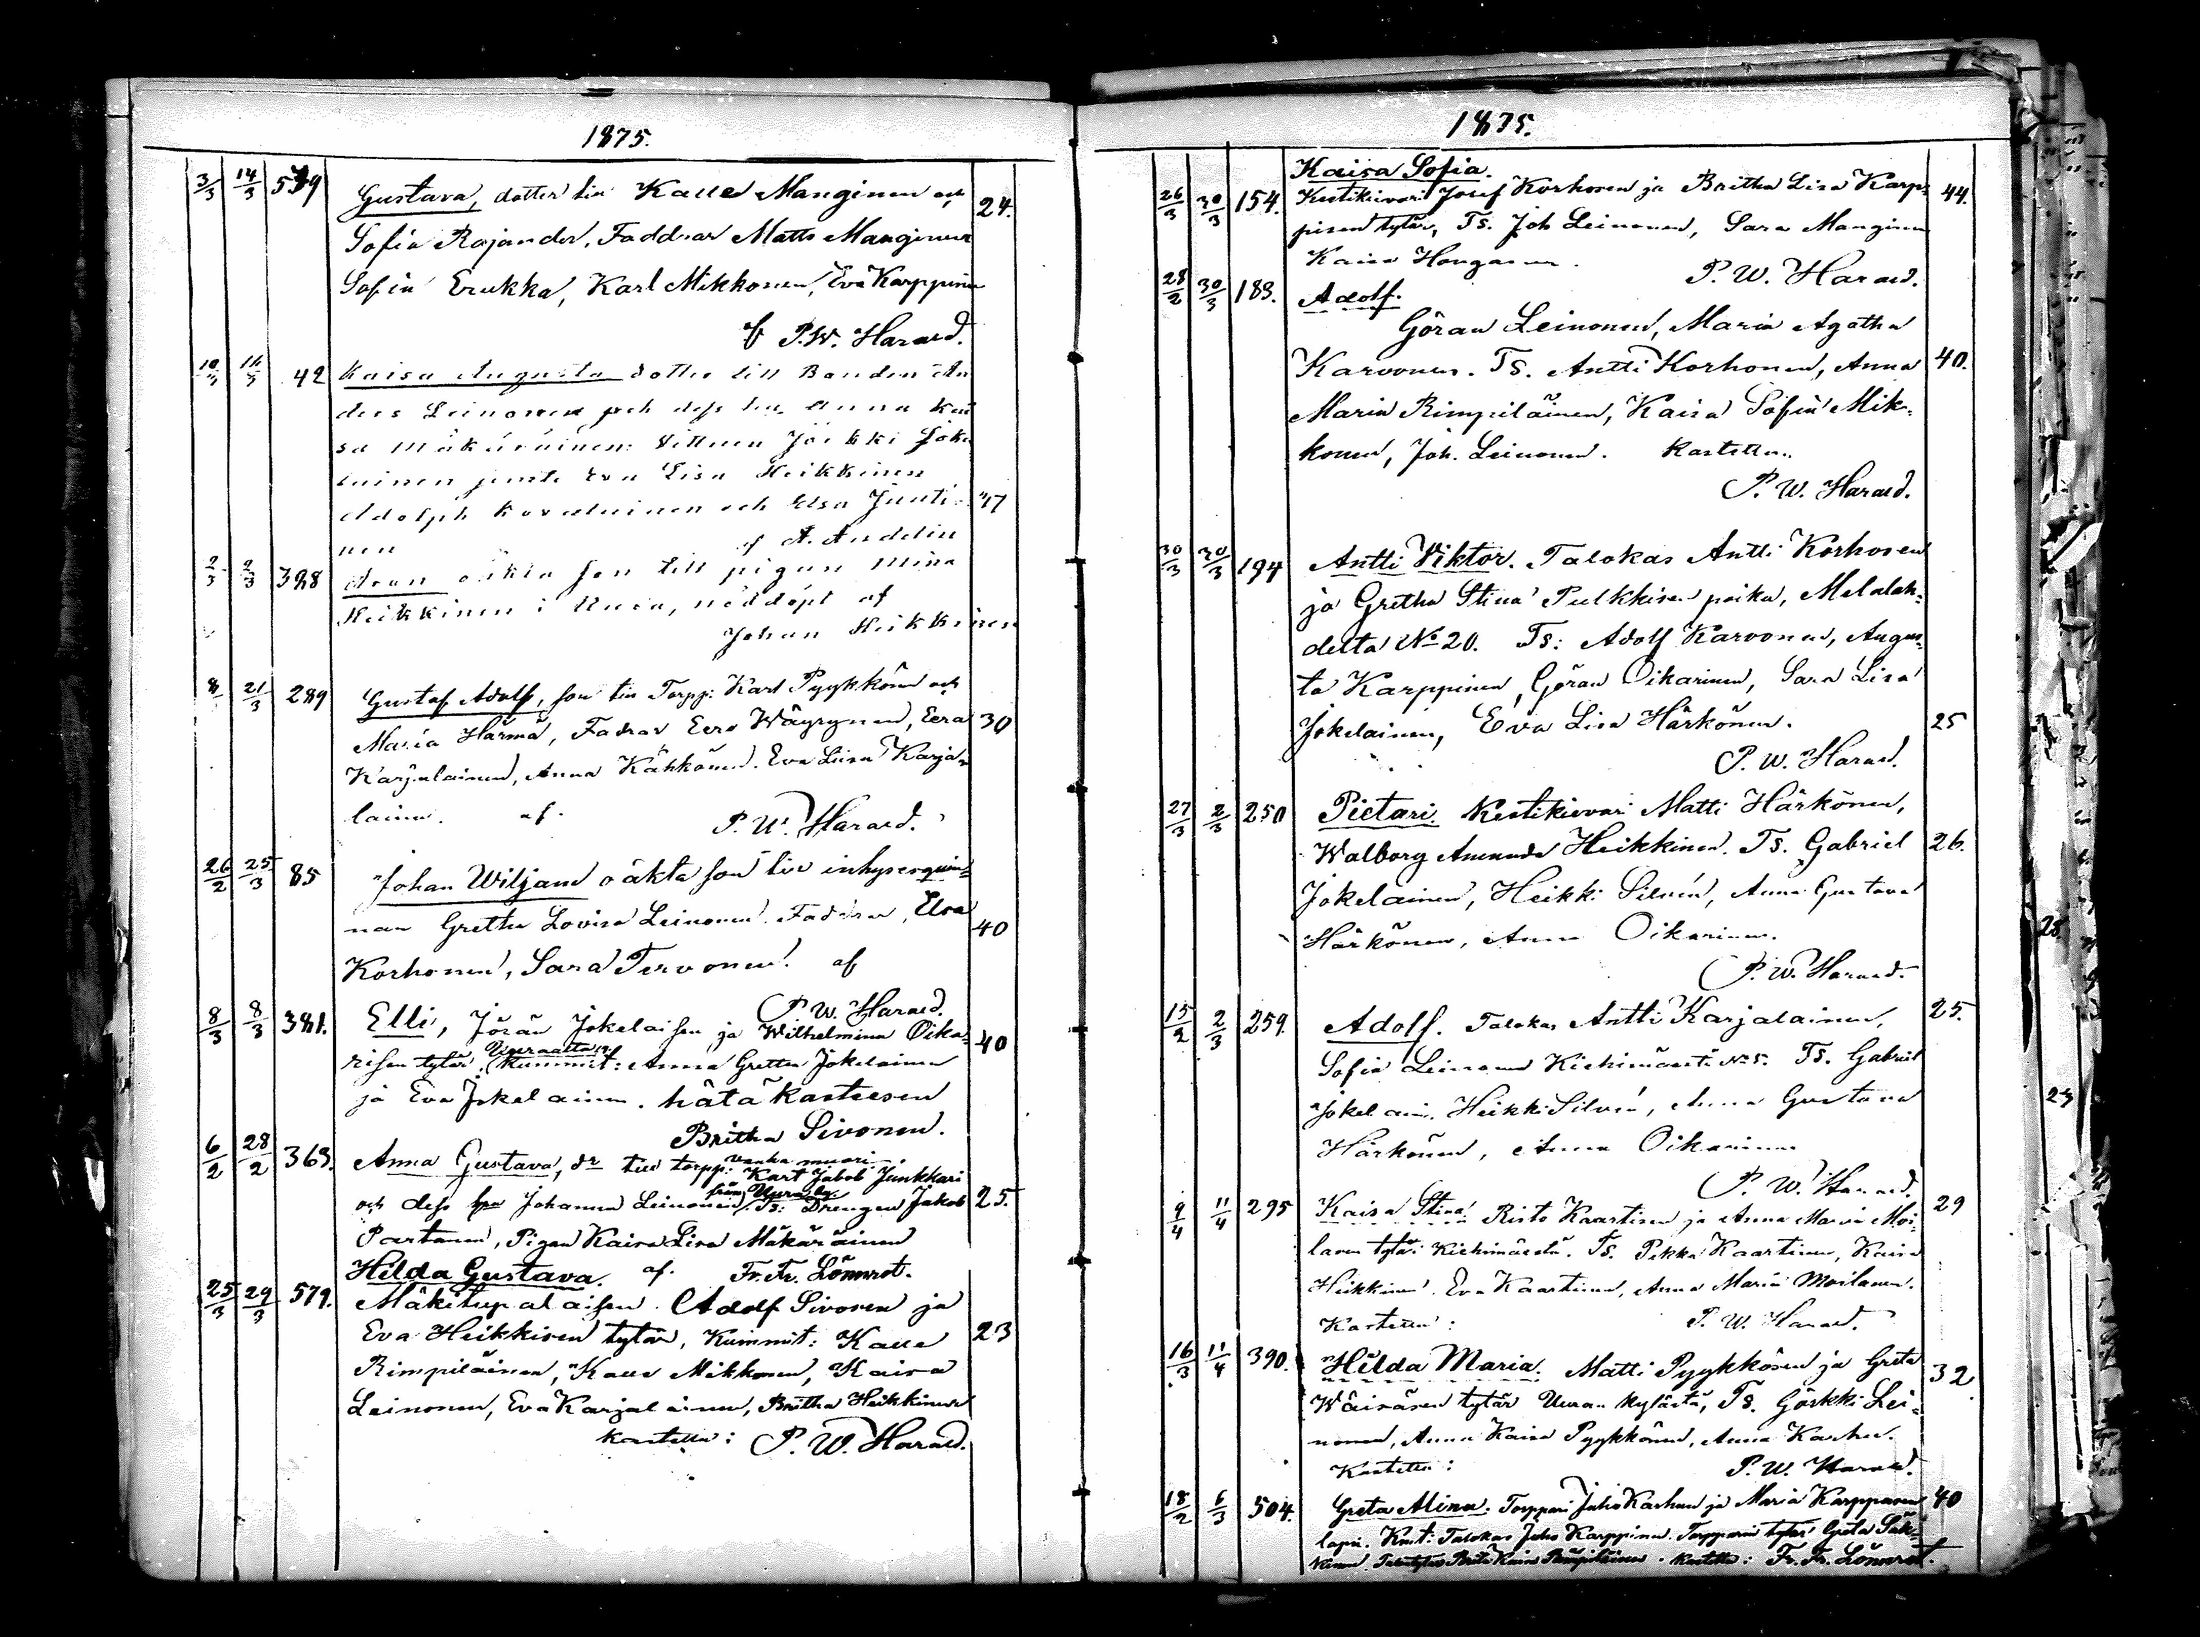 1875.
3/3 14/3 579 Gustava, dotter till Kalle Manginen och 24.
Sofia Rajander. Faddrar Matts Manginen
Sofia Erukka, Karl Mikkonen, Eva Karppinen
af P.W. Harald.
10/3 42 Kaisa Augusta dotter till Bonden An
ders Leinonen och dess hu Anna Kai
sa Mäkäräinen: Vittnen Jörkki Joke
lainen jemte Eva Lisa Heikkinen
Adolph Kovalainen och Elsa Junti= 37
nen af A. Andelin
2/3 2/3 328 oäkta son till pigan Mina
Heikkinen i Uura, nöddöpt af
Johan Heikkinen
8/ 21/3 289 Gustaf Adolf, son till Torpp: Karl Pyykkönen och
Maria Härmä, Fadrar Eero Wäyrynen, Eera 30
Karjalainen, Anna Kähkönen. Eva Liisa Karja=
lainen. af. P.W. Harald.
26/2 25/3 85 Johan Wiljam oäkta son till inhysesqvin=
nan Gretha Lovisa Leinonen. Faddrar, Elsa 40
Korhonen, Sara Tervonen. af
P.W. Harald.
8/3 8/3 381. Elli, Jörän Jokelaisen ja Wilhelmina Oika= 40
risen tytär, Uuraalta Kummit: Anna Gretha Jokelainen
ja Eva Jokelainen. hätäkasteesen
Britha Sivonen.
6/2 28/2 363. Anna Gustava, dr till torpp: vanha muori Karl Jakob Junkkari
och dess hu Johanna Leinonen från Uura by. Ts: Drengen Jakob 25.
Partanen, Pigan Kaisa Lisa Mäkäräinen
af. Fr. Fr. Lönnrot.
25/3 29/3 579. Hilda Gustava.
Mäkitupalaisen Adolf Sivonen ja
Eva Heikkisen tytär, Kummit: Kalle 23
Rimpiläinen, Kalle Mikkonen, Kaisa
Leinonen, Eva Karjalainen, Britha Heikkinen
kastettu: P.W. Harald.
1875.
Kaisa Sofia.
26/3 30/3 154. Kestikievari Josef Korhonen ja Britha Lisa Karp= 44.
pisen tytär, Ts. Joh Leinonen, Sara Manginen
Kaisa Hongasen. P.W. Harald.
28/2 30/3 183. Adolf.
Göran Leinonen, Maria Agatha
Karvonen. Ts. Antti Korhonen, Anna 40.
Maria Rimpiläinen, Kaisa Sofia Mik=
konen, Joh. Leinonen. Kastettu..
P.W. Harald.
30/3 30/3 194 Antti Viktor. Talokas Antti Korhosen
ja Gretha Stina Pulkkisen poika, Melalah=
delta No 20. Ts: Adolf Karvonen, Augus=
ta Karppinen, Göran Oikarinen, Sara Lisa
Jokelainen, Eva Lisa Härkönen. 25
P.W. Harald.
27/3 2/3 250 Pietari. Kestikievari Matti Härkönen,
Walborg Amanda Heikkinen. Ts. Gabriel 26.
Jokelainen, Heikki Silvén, Anna Gustava
Härkönen, Anna Oikarinen.
P.W. Harald.
15/2 2/3 259. Adolf. Talokas Antti Karjalainen, 25.
Sofia Leinonen Kiehimäestä No 5. Ts. Gabriel
Jokelain. Heikki Silvén, Anna Gustava
Härkönen, Anna Oikarinen
P.W. Harald.
9/4 11/4 295 Kaisa Stina. Risto Kaartisen ja Anna Maria Moi= 29
lasen tytär Kiehimäestä. Ts. Pekka Kaartinen, Kaisa
Heikkinen. Eva Kaartinen, Anna Maria Moilanen.
Kastettu: P.W. Harald.
16/3 11/4 390. Hilda Maria. Matti Pyykkösen ja Greta 32.
Wäisäsen tytär Uuran kylästä, Ts. Görkki Lei=
nonen, Anna Kaisa Pyykkönen, Anna Karhu.
Kastettu: P.W. Harald.
18/2 6/3 504. Greta Alina. Torppari Juho Karhun ja Maria Karppasen 40
lapsi. Kmt: Talokas Juho Karppinen. Torpparin tytär Greta
Kastettu: Fr. Fr. Lönnrot.